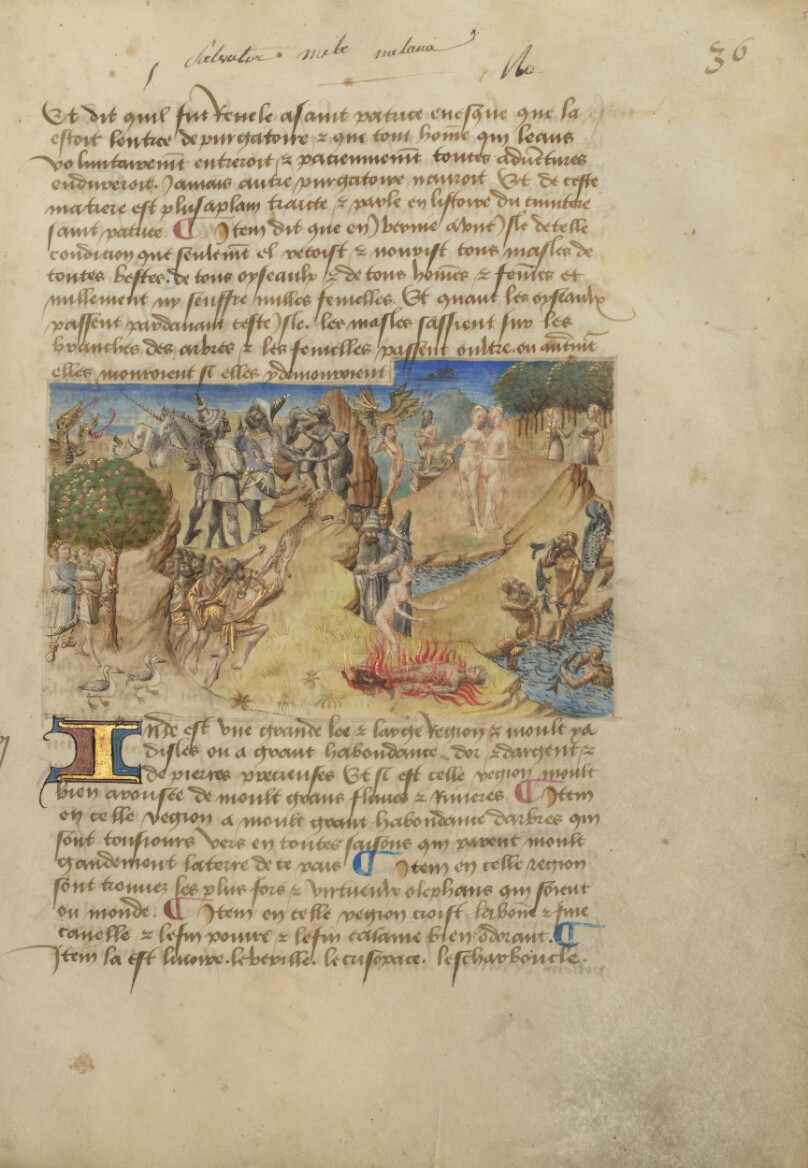 36
Et dit quil fut Revele a saint patrice evesque que la
estoit lentree de purgatoire & que tout home qui leans
voluntairemt entreroit & paciemmemt toutes advētures
endureroit. Jamais autre purgatoire nauroit Et de ceste
matiere est plus aplain traicte & parle en listoire du
saint patrice ¶ Item dit que en Iverine a une isle de telle
condicion que seulemt el retoist & nourist tous masles de
toutes bestes. de tous oyseaulx & de tous homēs & femēs et
nullement ny seuffre nulles femelles Et quant les oyseaulx
passent pardavant ceste Isle. les masles sassient sur les
branches des arbres & les femelles passent oultre. ou autmt
elles mourroient si elles y demouroient
Inde est une grande lee & large Region & moult ya
disles ou a grant habondance dor & dargent &
de pierres precieuses Et si est celle region moult
bien arousee de moult grans fluves & Rivieres ¶ Item
en celle region a moult grant habondance darbres qui
sont tousiours vers en toutes saisons qui parent moult
gandement la terre de ce pais ¶ Item en celle region
sont trouvez les plus fors & virtueulx olephans qui soient
ou monde. ¶ Item en celle region croist la bone & fine
canelle & le fin poivre & le fin calame bien odorant. ¶
Item la est livoire. le berille. le crisopace. lescharboucle.